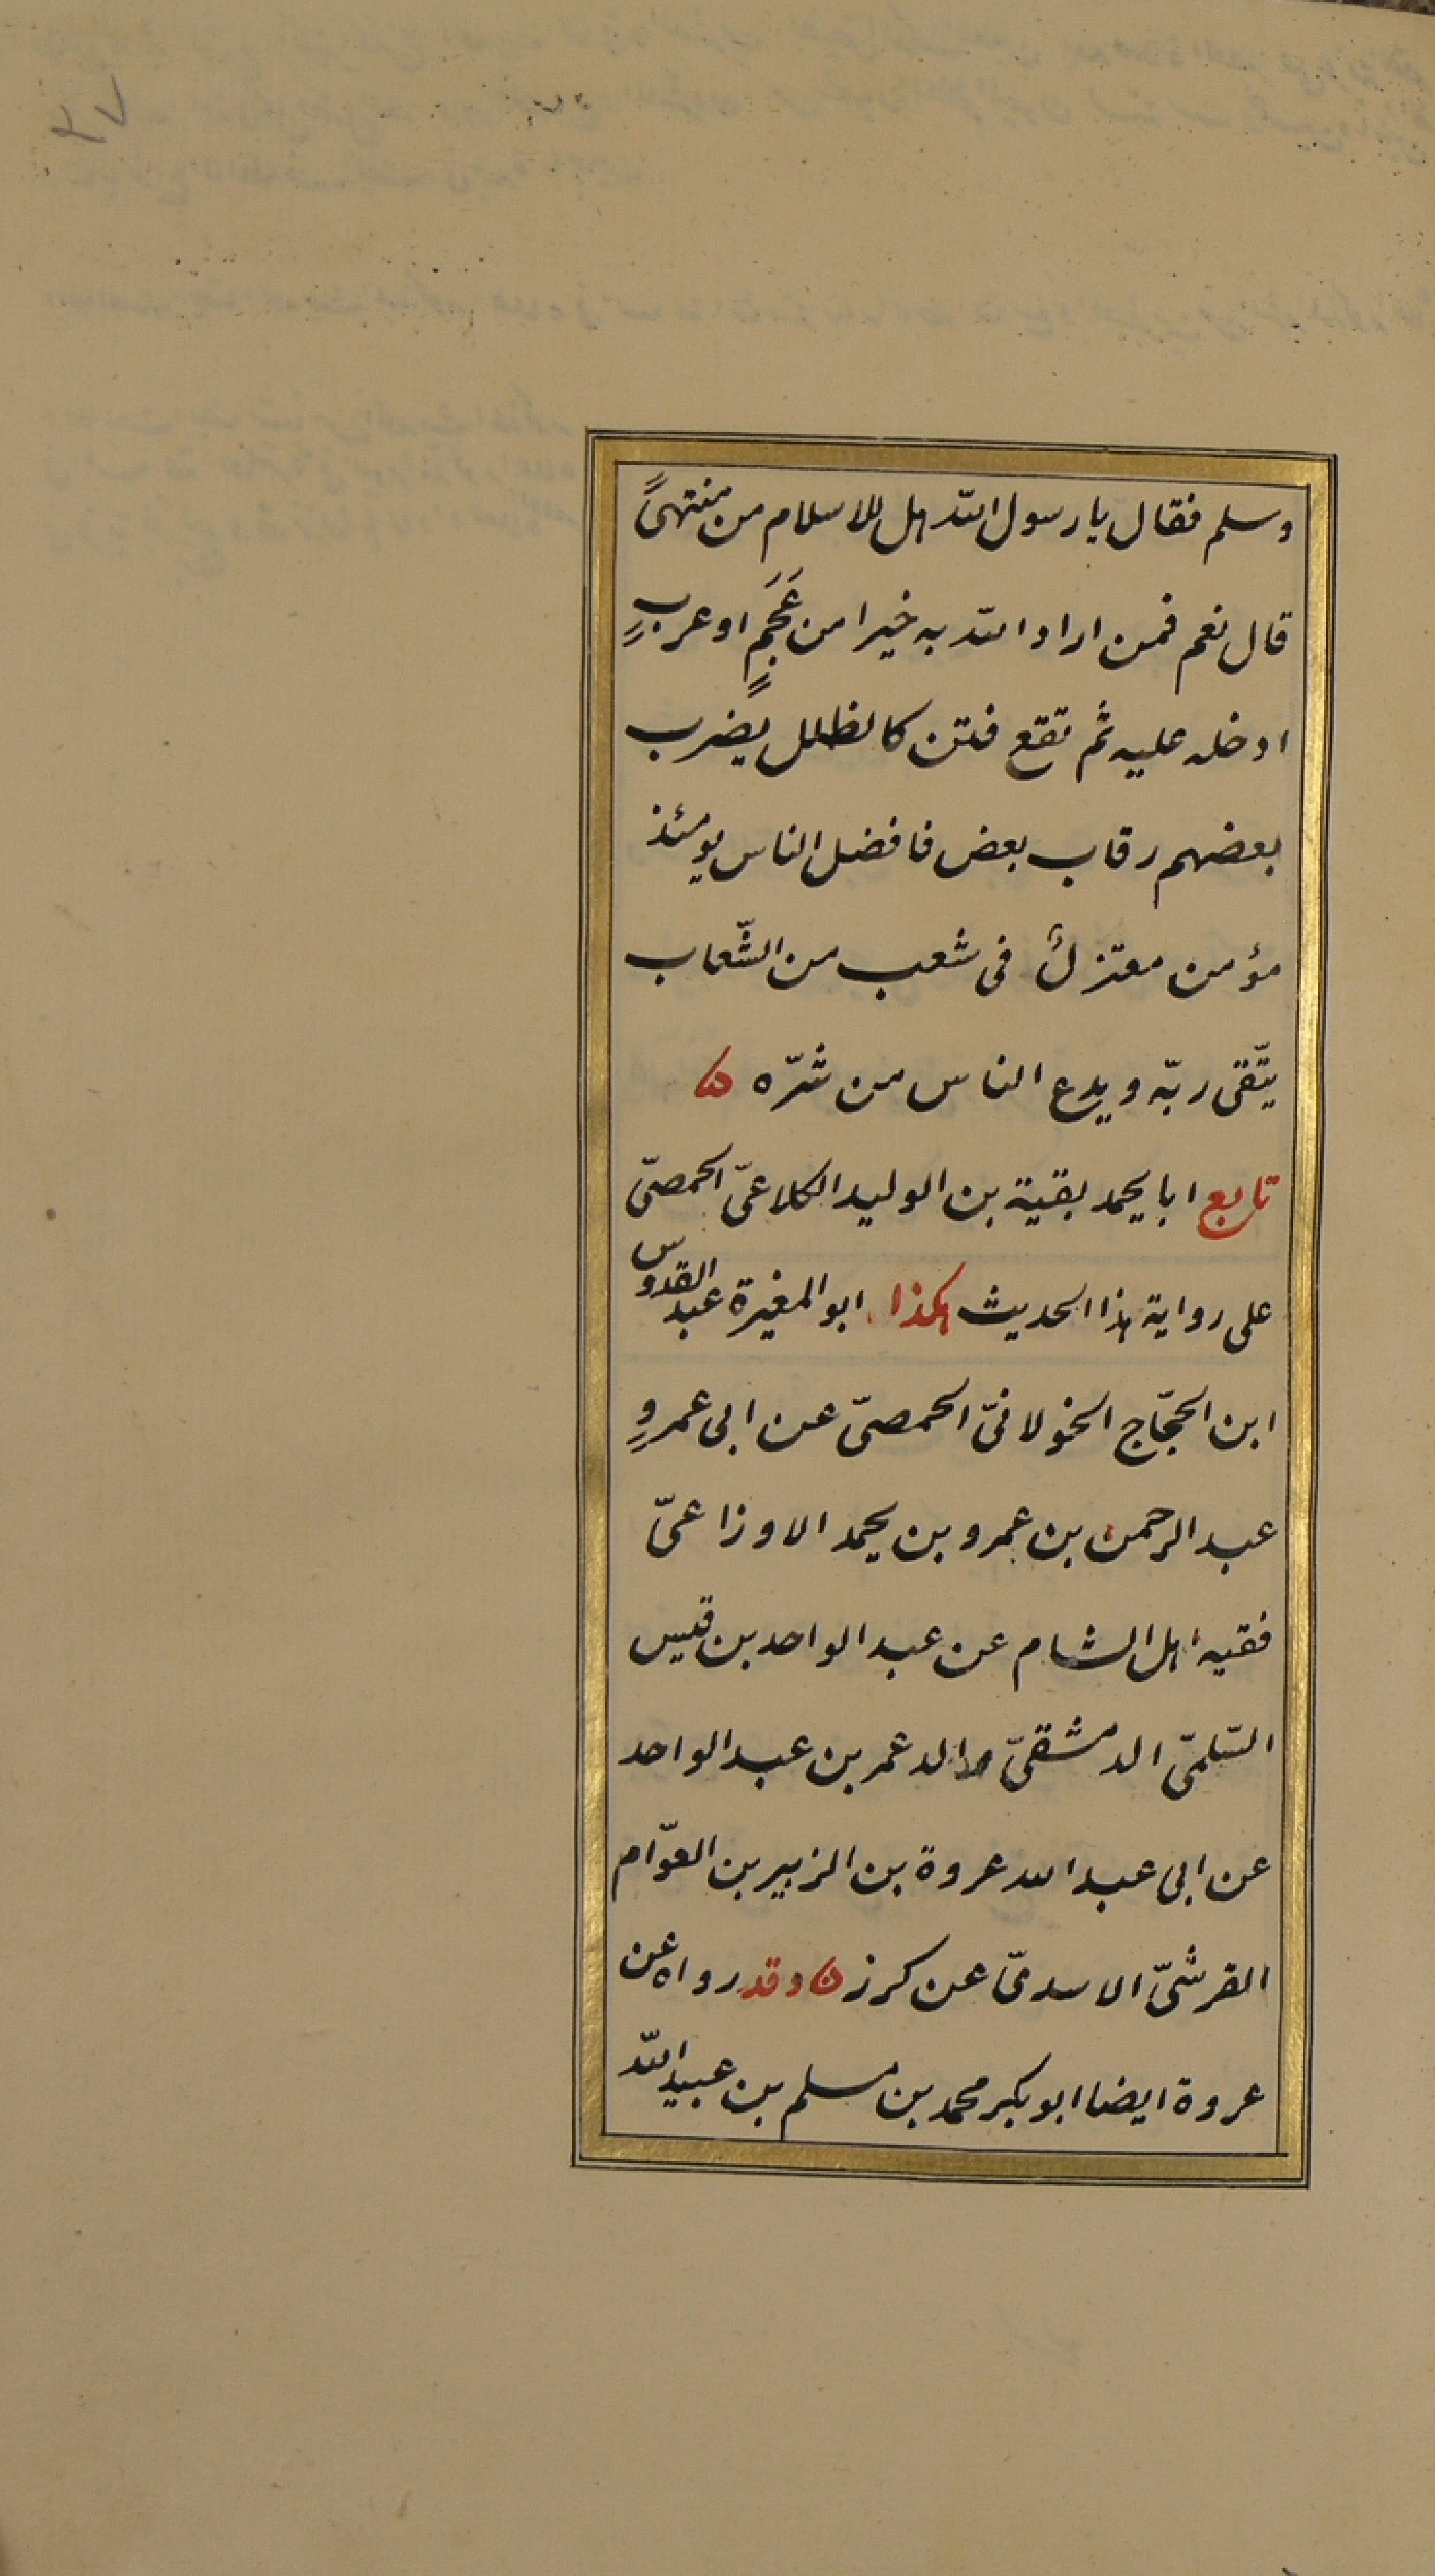 وسلم فقال يا رسول الله هل للاسلام من منتهىً
قال نعم فمن اراد الله به خيرا من عَجَمٍ او عربٍ
ادخله عليه ثم تقع فتن كالظلل يضرب
بعضهم رقاب بعض فافضل الناس يومئذ
مؤمن معتزلٌ فى شعب من الشّعاب
يتّقى ربّه ويدع الناس من شرّه ه
تابع ابا يحمد بقية بن الوليد الكلاعىّ الحمصىّ
على رواية هذا الحديث هكذا ابو المغيرة عبد القدوس
ابن الحجّاج الخولانىّ الحمصىّ عن ابى عمروٍ
عبد الرحمن بن عمرو بن يحمد الاوزاعىّ
فقيه اهل الشام عن عبد الواحد بن قيس
السّلمىّ الدمشقىّ والد عمر بن عبد الواحد
عن ابى عبد الله عروة بن الزبير بن العوّام
القرشىّ الاسدىّ عن كرز ه وقد رواه عن
عروة ايضا ابو بكر محمد بن مسلم بن عبيد الله